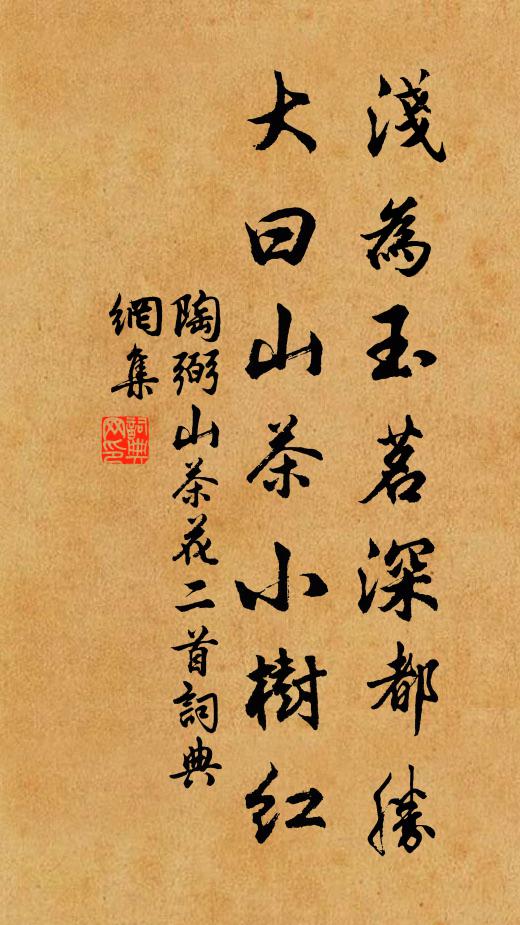 淺為玉茗深都勝
大曰山茶小樹紅
陶弼山茶花二首詞典
網集
詞典
网印